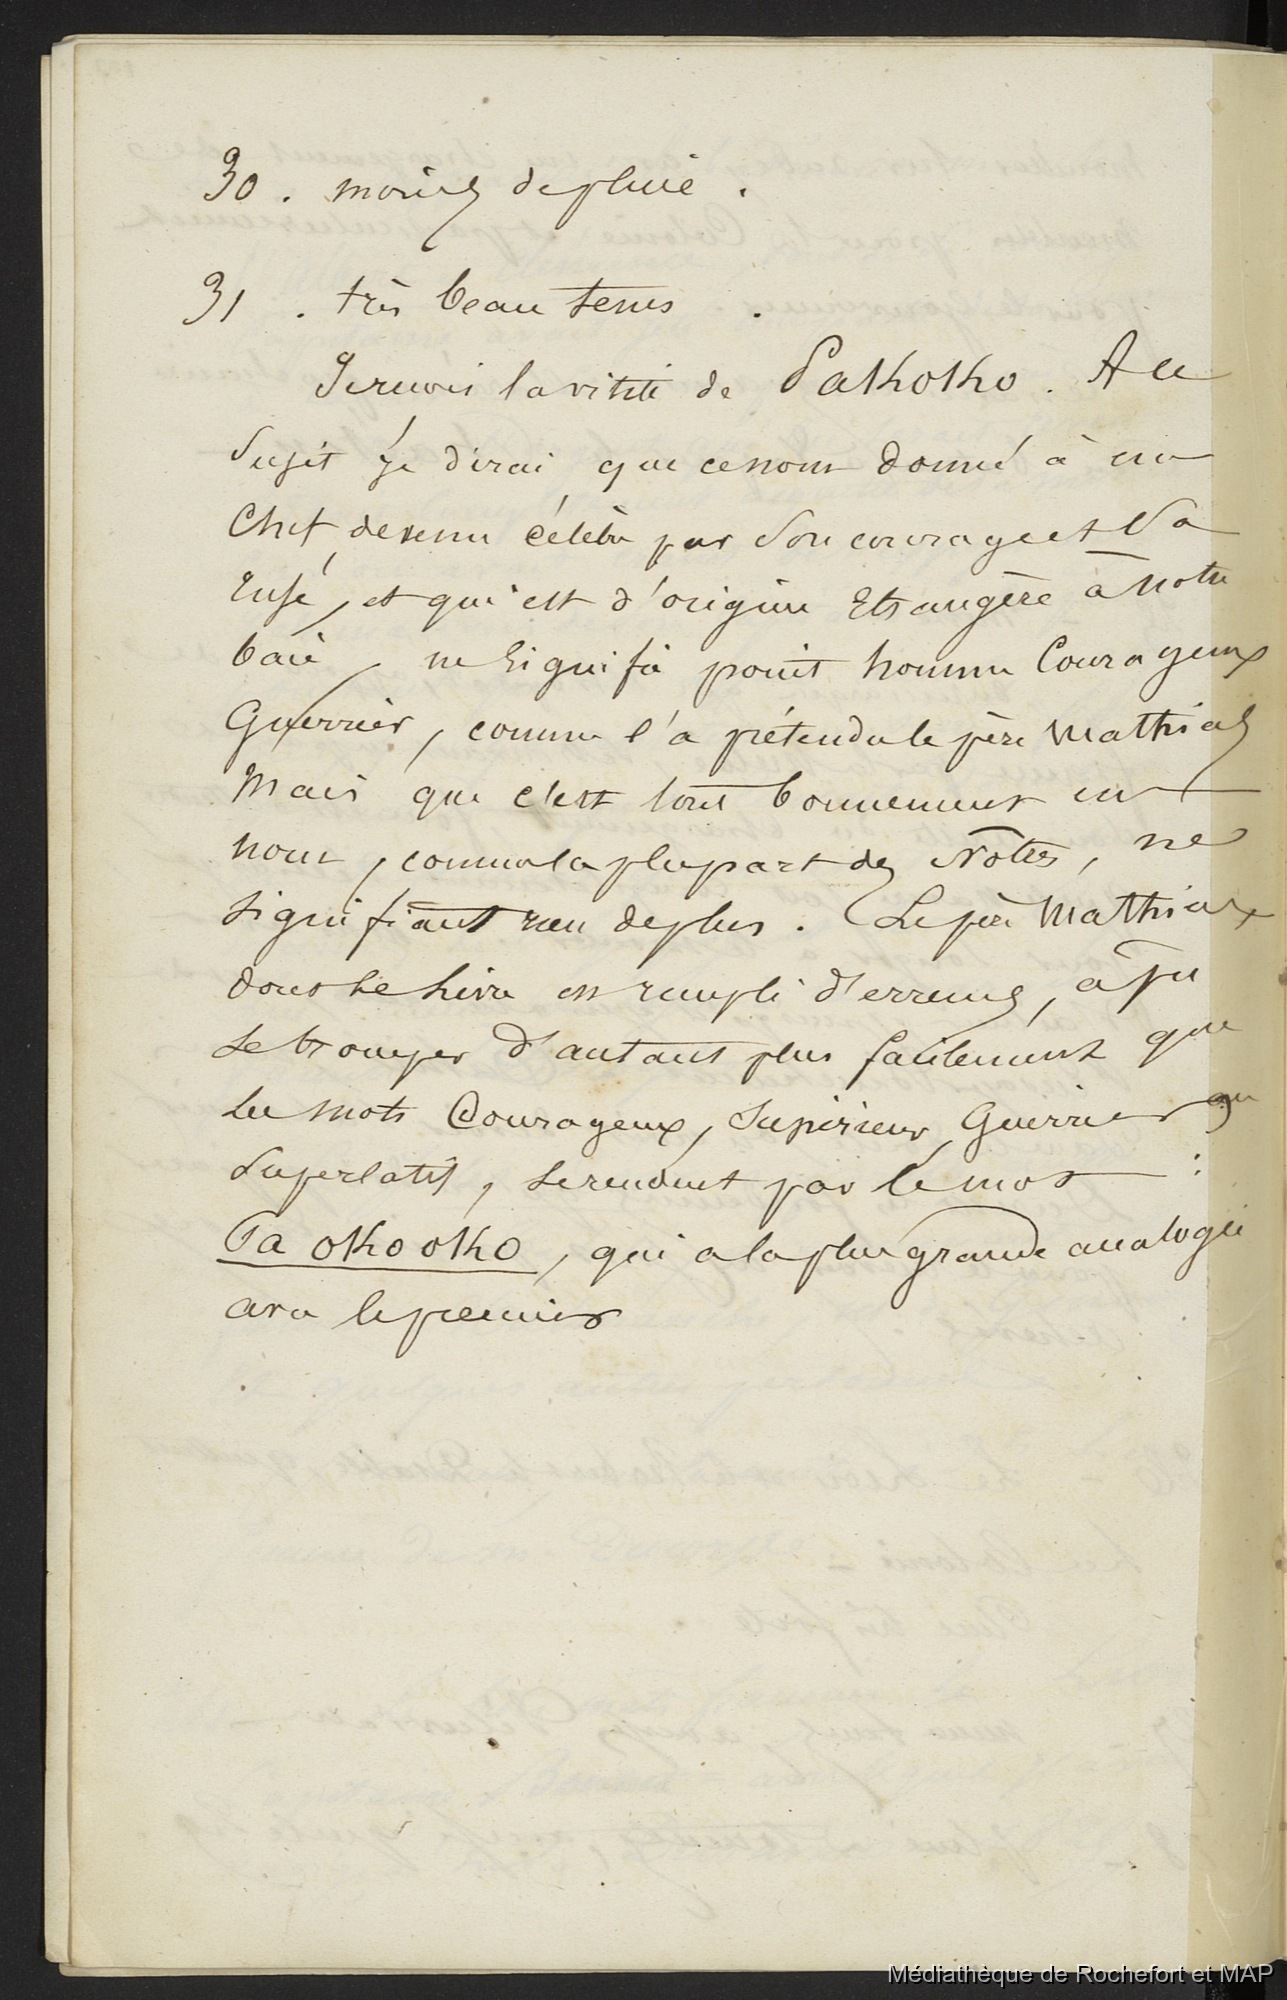 30 . moins de pluie .
31 . très beau tems .
Je reçois la visite de Pakoko . A ce
sujet je dirai que ce nom donné à un
Chef devenu célèbre par son courage et sa
ruse, et qui est d'origine Etrangère à notre
baie, ne signifie point homme Courageux
Guerrier, comme l'a prétendu le père Mathias
Mais que c'est tout bonnement un
nom, comme la plupart des Nôtres, ne
signifiant rien de plus . Le père Mathias
dont le livre est rempli d'erreurs, a pu
se tromper d'autant plus facilement que
les mots Courageux, Supérieur, Guerrier au
Superlatif, se rendent par le mot :
Pa oko oko, qui a la plus grande analogie
avec le premier
Médiathèque de Rochefort et MAP